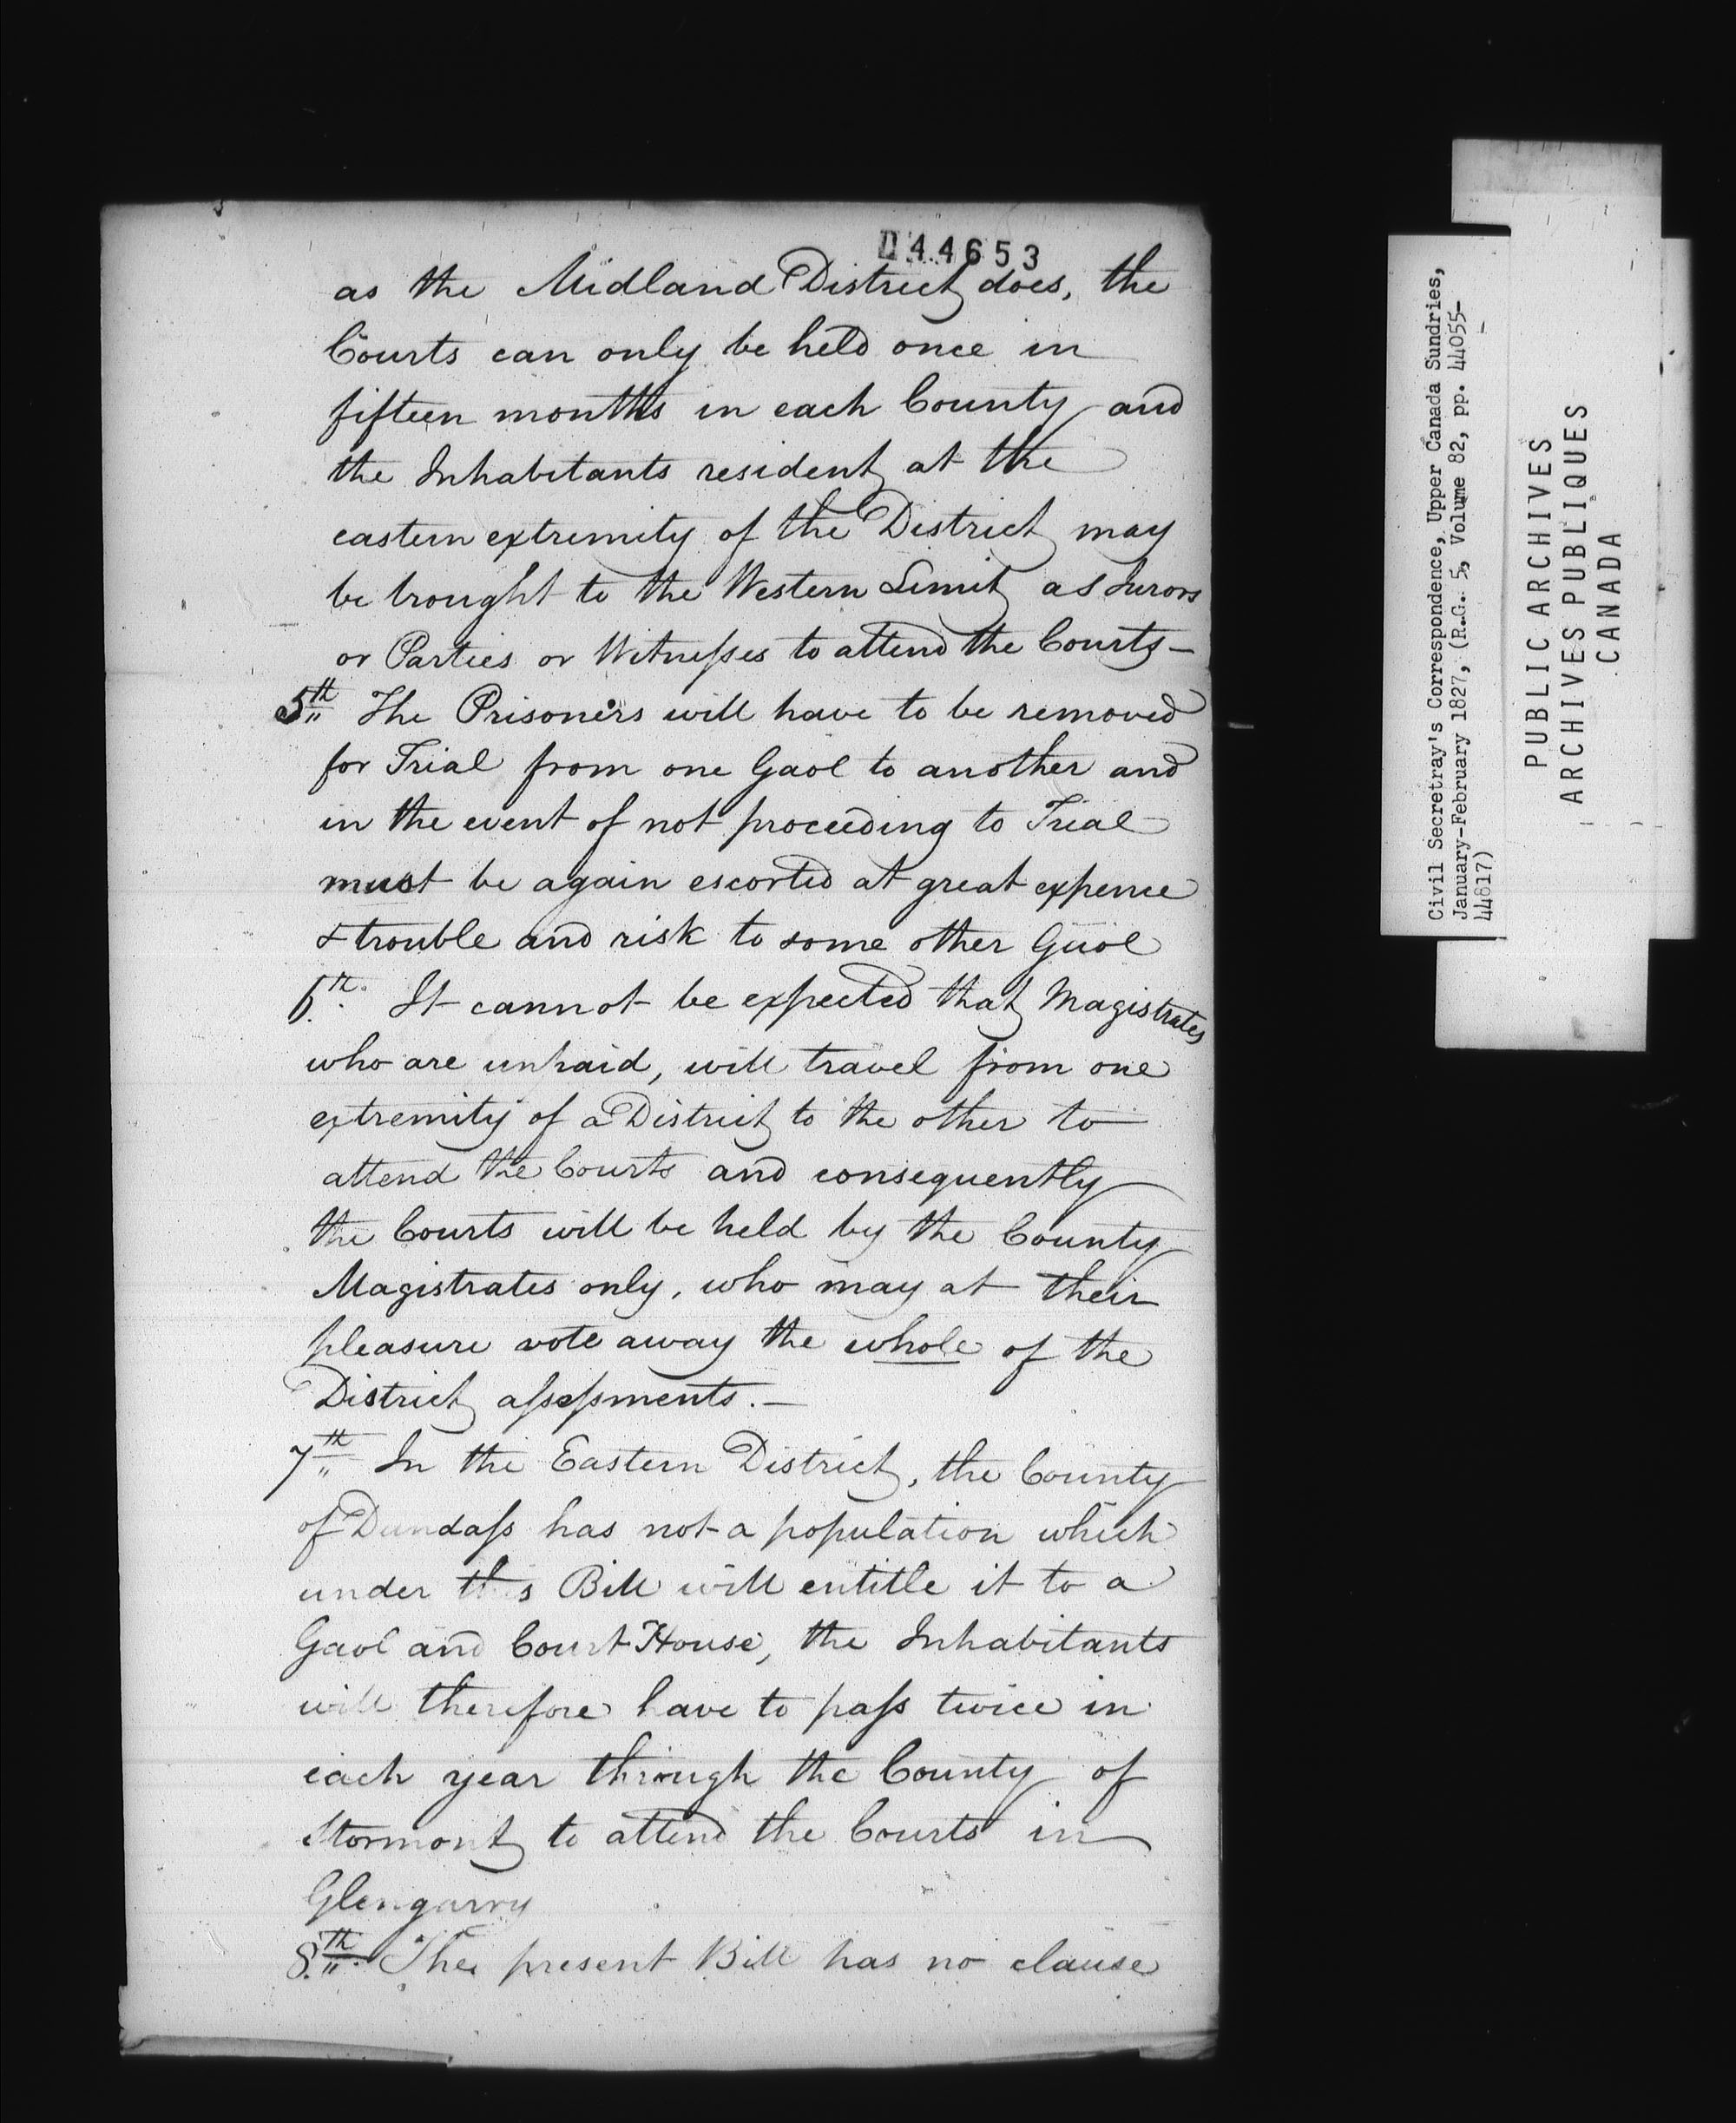 D44653
as the Midland District does, the
Courts can only be held once in
fifteen months in each County and
the Inhabitants resident at the
eastern extremity of the District may
be brought to the Western Limit as Jurors
or Parties or Witnesses to attend the Courts—
5th The Prisoners will have to be removed
for Trial from one Gaol to another and
in the event of not proceeding to Trial
must be again escorted at great expence
& trouble and risk to some other Gaol
6th. It cannot be expected that Magistrates
who are unpaid, will travel from one
extremity of a District to the other to
attend the Courts and consequently
the Courts will be held by the County
Magistrates only, who may at their
pleasure vote away the whole of the
District assessments.—
7th In the Eastern District, the County
of Dundass has not a population which
under this Bill will entitle it to a
Gaol and Court House, the Inhabitants
will therefore have to pass twice in
each year through the County of
Stormont to attend the Courts in
Glengarry
8th. The present Bill has no clause
Civil Secretray's Correspondence, Upper Canada Sundries,
January-February 1827, (R.G. 5, Volume 82, pp. 44055-
44817)
PUBLIC ARCHIVES
ARCHIVES PUBLIQUES
CANADA